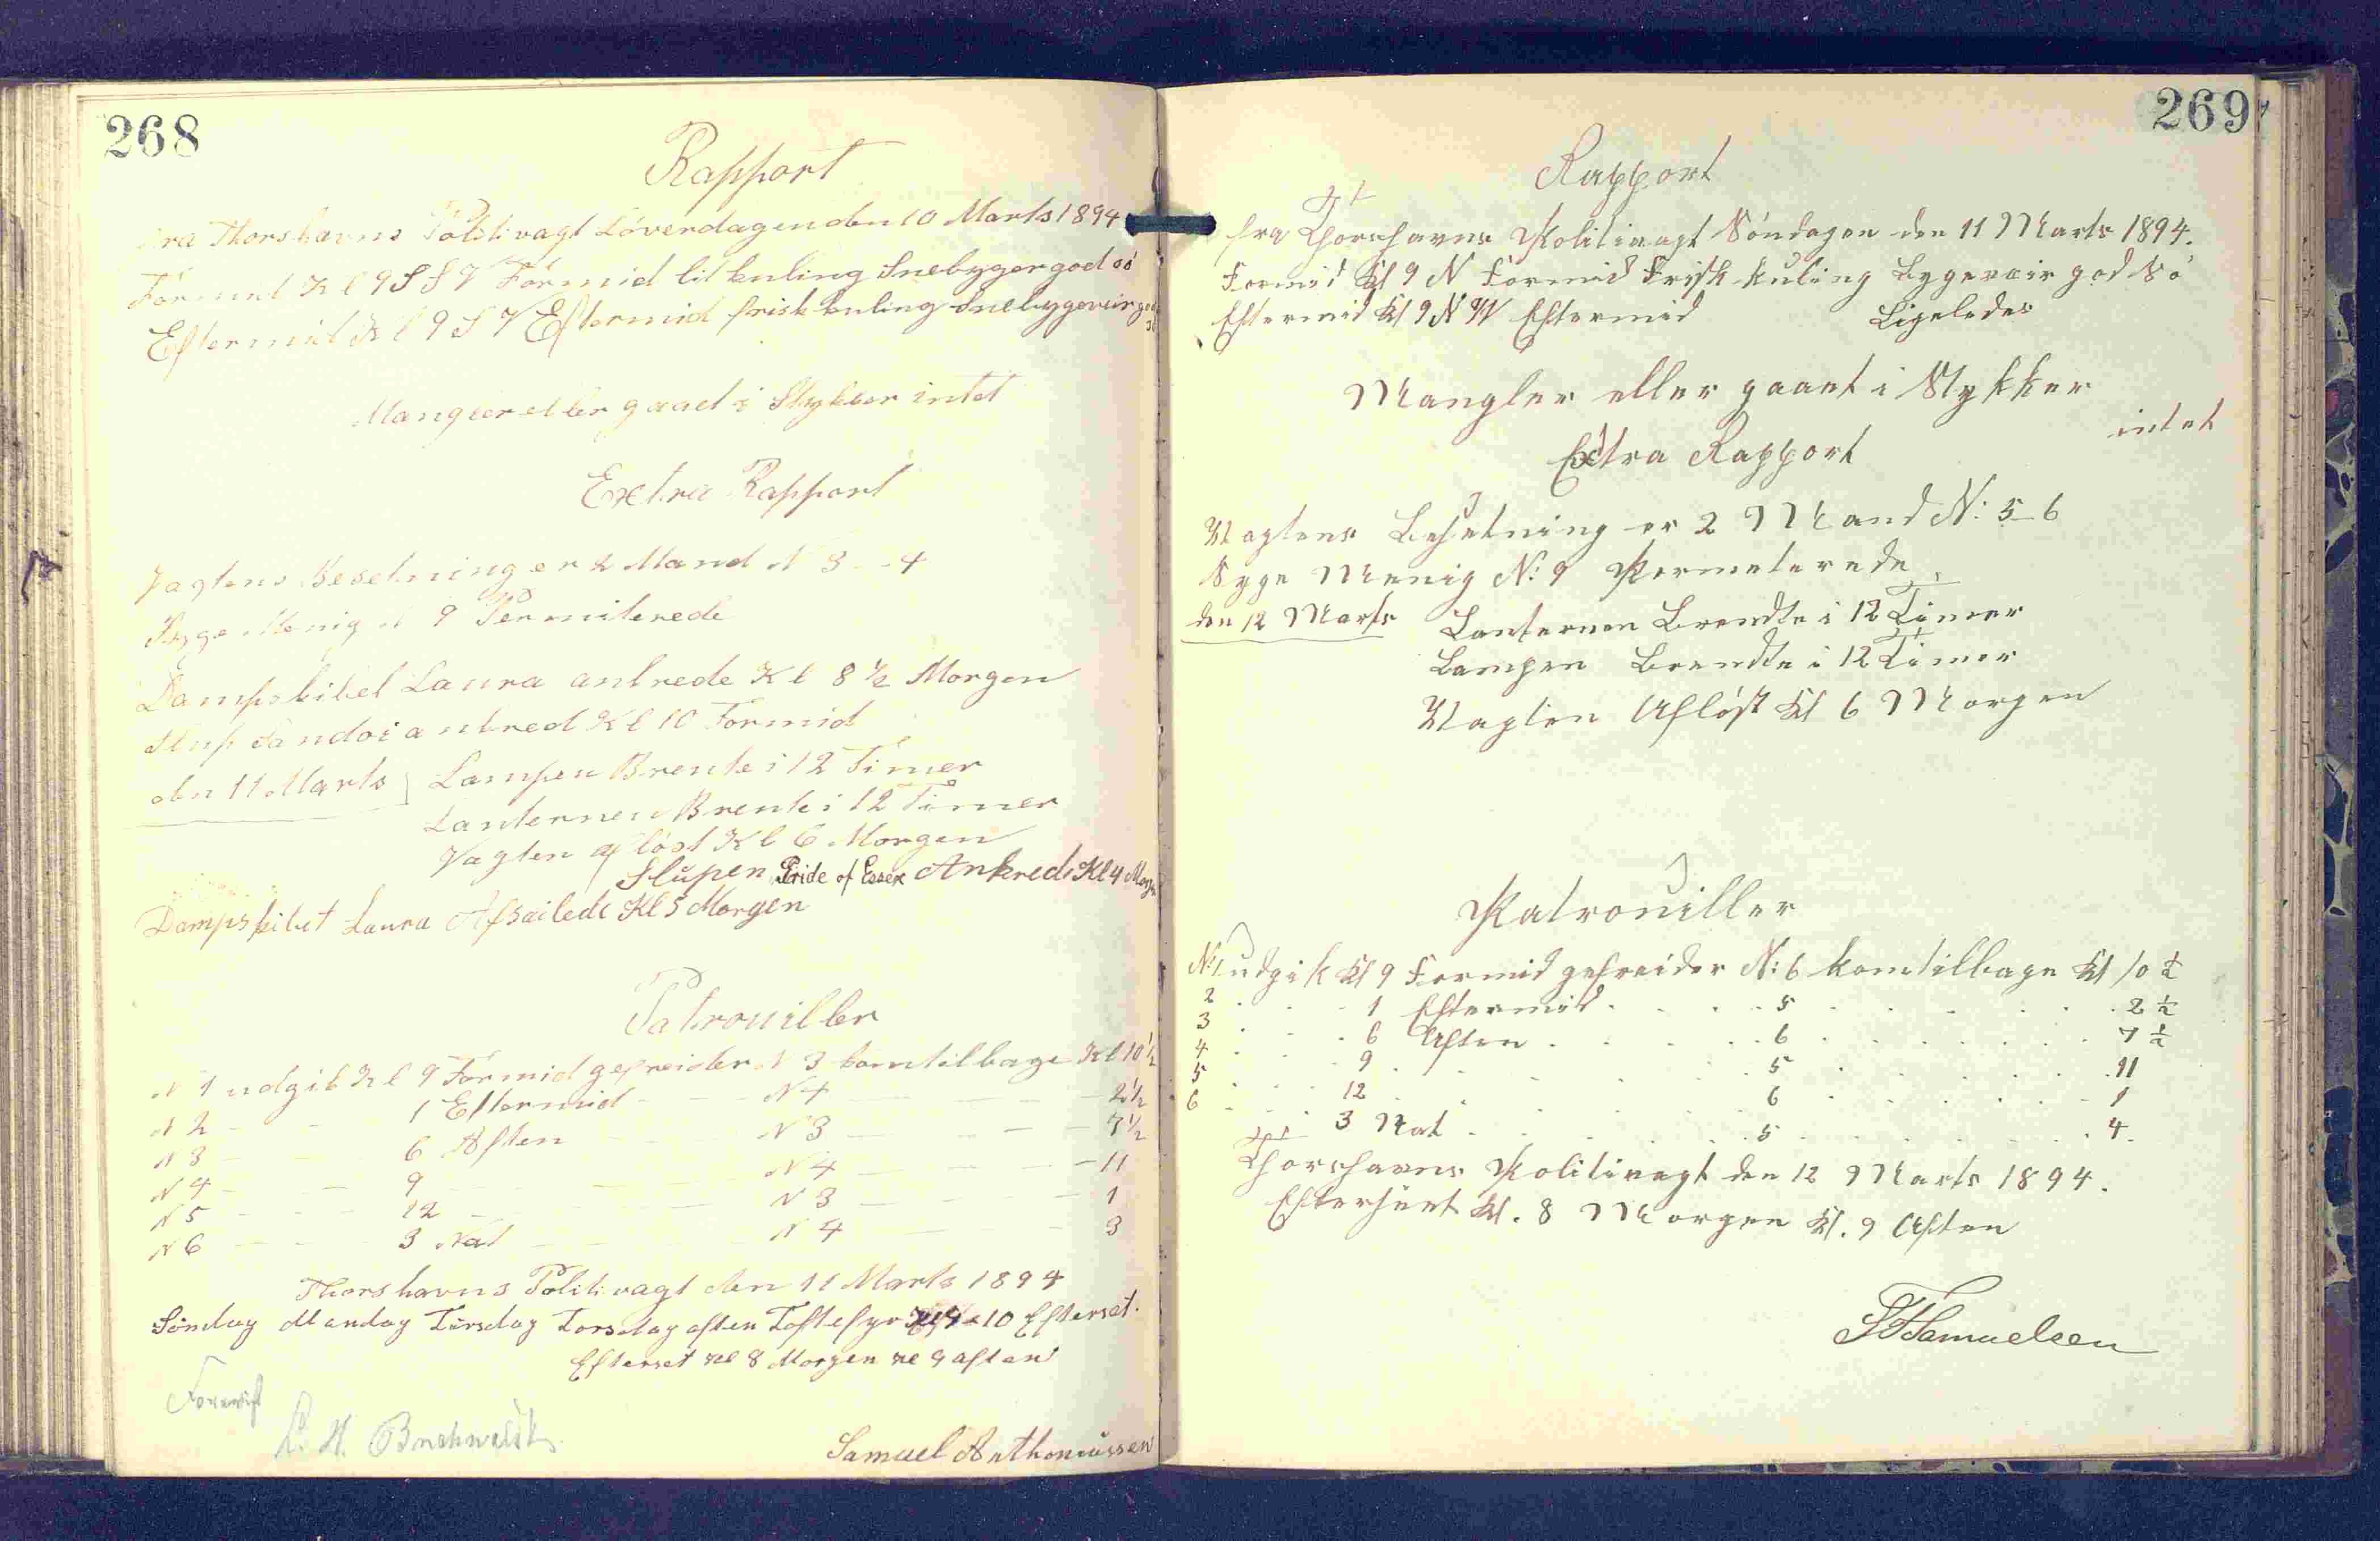 268
Rapport
fra Thorshavns Politivagt Löverdagen den 10 Marts 1894
Formid Kl 9 S S V Formid lit kuling Snebyger god sö
Eftermid Kl 9 S V Eftermid frisk kuling Snebygeveir god
Mangler eller gaaed i Stykker intet
Extra Rapport
Vagtens Besetning er 2 Mand N 3 - 4
Syge Menig N 9 Permiterede
Dampskibet Laura ankrede Kl 8 1/2 Morgen
Slup Sandoi ankred Kl 10 Formid
den 11 Marts Lampen Brente i 12 Timer
Lanternen Brente i 12 Timer
Vagten aflöst Kl 6 Morgen
Slupen Pride of Essex Ankrede Kl 4 Morgen
Dampskibet Laura Afsailede Kl 5 Morgen
Patrouiller
N 1 udgik Kl 9 Formid gefreider N 3 kom tilbage Kl 10 1/2
N 2 - - 1 Eftermid - - N 4 - - - 2 1/2
N 3 - - 6 Aften - - N 3 - - - 7 1/2
N 4 - - 9 - - N 4 - - - 11
N 5 - - 12 - - N 3 - - - 1
N 6 - - 3 Nat - - N 4 - - - 3
Thorshavns Politivagt den 11 Marts 1894
Söndag Mandag Tirsdag Torsdag aften Toftefyr 10 Efterset.
Efterset Kl 8 Morgen Kl 9 aften
Forevist
Samuel Anthoniussen
269
Rapport
fra Thorshavns Politivagt Söndagen den 11 Marts 1894.
Formid Kl 9 N Formid Frisk kuling Bygeveir god Sö
Eftermid Kl 9 N W Eftermid Ligeledes
Mangler eller gaaet i Stykker
intet
Extra Rapport
Vagtens Besetning er 2 Mand N: 5-6
Syge Menig N: 9 Permeterede
den 12 Marts Lanternen Brendte i 12 Timer
Lampen Brendte i 12 Timer
Vagten Aflöst Kl 6 Morgen
Patrouiller
N: 1 udgik Kl 9 Formid gefreider N: 6 kom tilbage Kl 10 1/2
2 . . . 1 Eftermid . . . 5 . . . 2 1/2
3 . . . 6 Aften . . . 6 . . . 7 1/2
4 . . . 9 . . . 5 . . . 11
5 . . . 12 . . . 6 . . . 1
6 . . . 3 Nat . . . 5 . . . 4.
Thorshavns Politivagt den 12 Marts 1894.
Eftersent Kl. 8 Morgen Kl. 9 Aften
Samuelsen